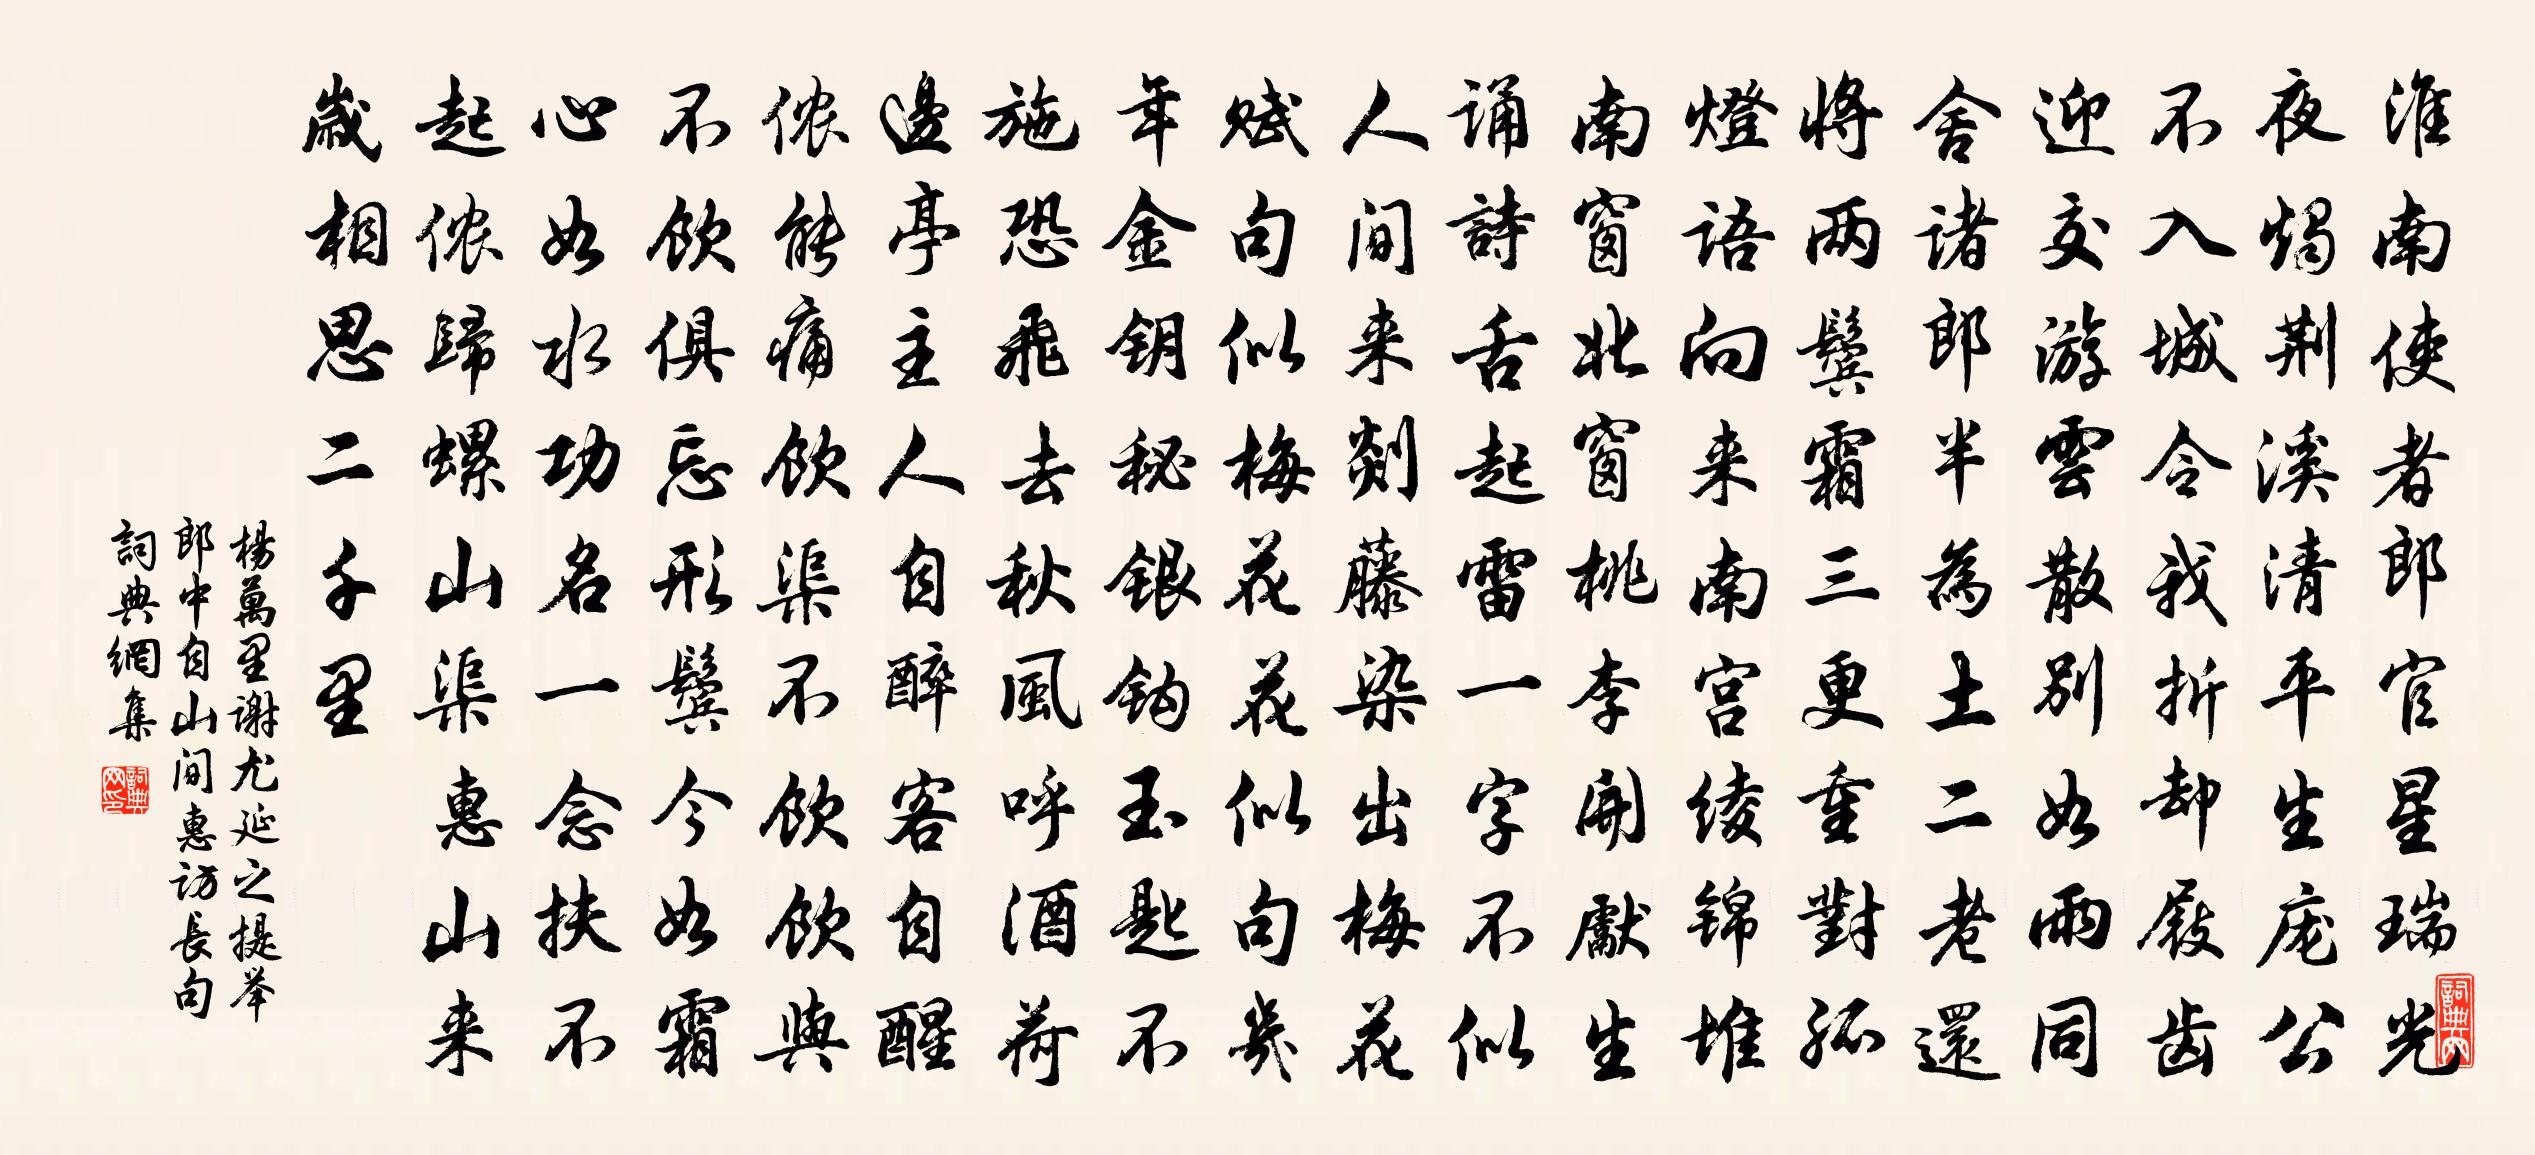 淮南使者郎官星瑞光
夜燭荆溪清平生庞公
不入城令我折却屐齿
迎交游雲散别如雨同
舍诸郎半為土二老還
将两鬓霜三更重對孤
燈语向来南宫绫锦堆
南窗北窗桃李開獻生
诵詩舌起雷一字不似
人间来剡藤染出梅花
赋句似梅花花似句幾
年金钥秘银钩玉匙不
施恐飛去秋風呼酒荷
邊亭主人自醉客自醒
侬能痛饮渠不饮饮與
不饮俱忘形鬓今如霜
心如水功名一念扶不
起侬歸螺山渠惠山来
歲相思二千里
楊萬里謝尤延之提举
郎中自山间惠访長句
詞典網集